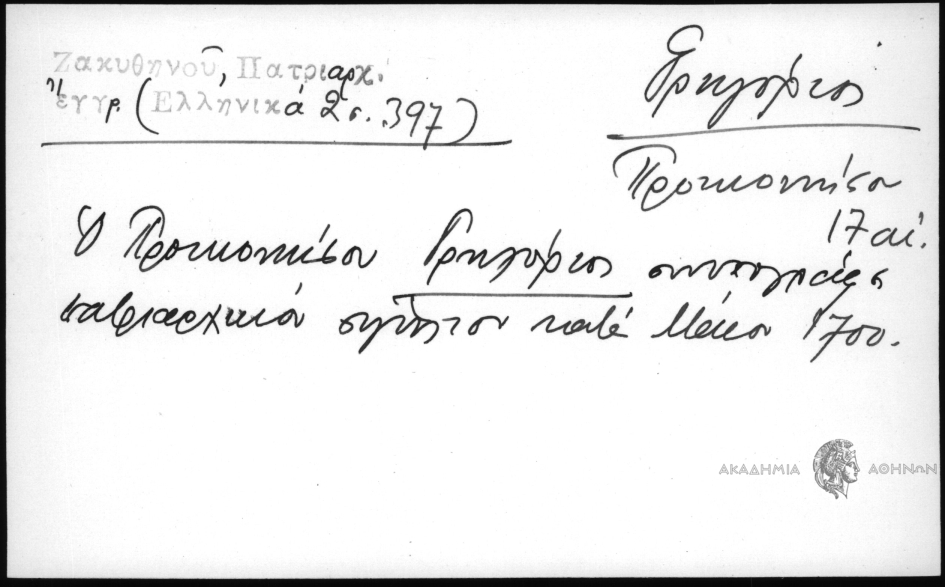 Ζακυθηνοῦ, Πατριαρχ.
ἔγγρ. (Ἑλληνικά 2 σ. 397)
Γρηγόριος
Προικοννήσου
17 αἰ.
Ὁ Προικοννήσου Γρηγόριος συνυπογράφει
πατριαρχικόν σιγίλλιον κατά Μάιον 1700.
ΑΚΑΔΗΜΙΑ ΑΘΗΝΩΝ